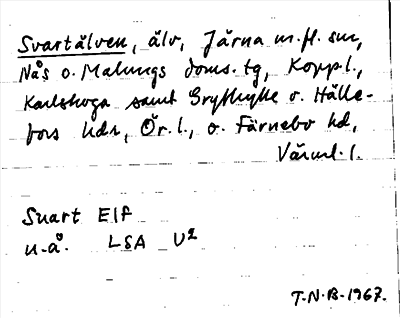 Svartälven, älv, Järna m.fl. snr,
Nås o. Malungs doms. tg, Koppl.,
Karlskoga samt Grythytte o. Hälle-
fors hdr, Ör.l., o. Färnebo hd,
Värml.l.
Suart Elf
u.å. LSA U2
T.N.B-1967.